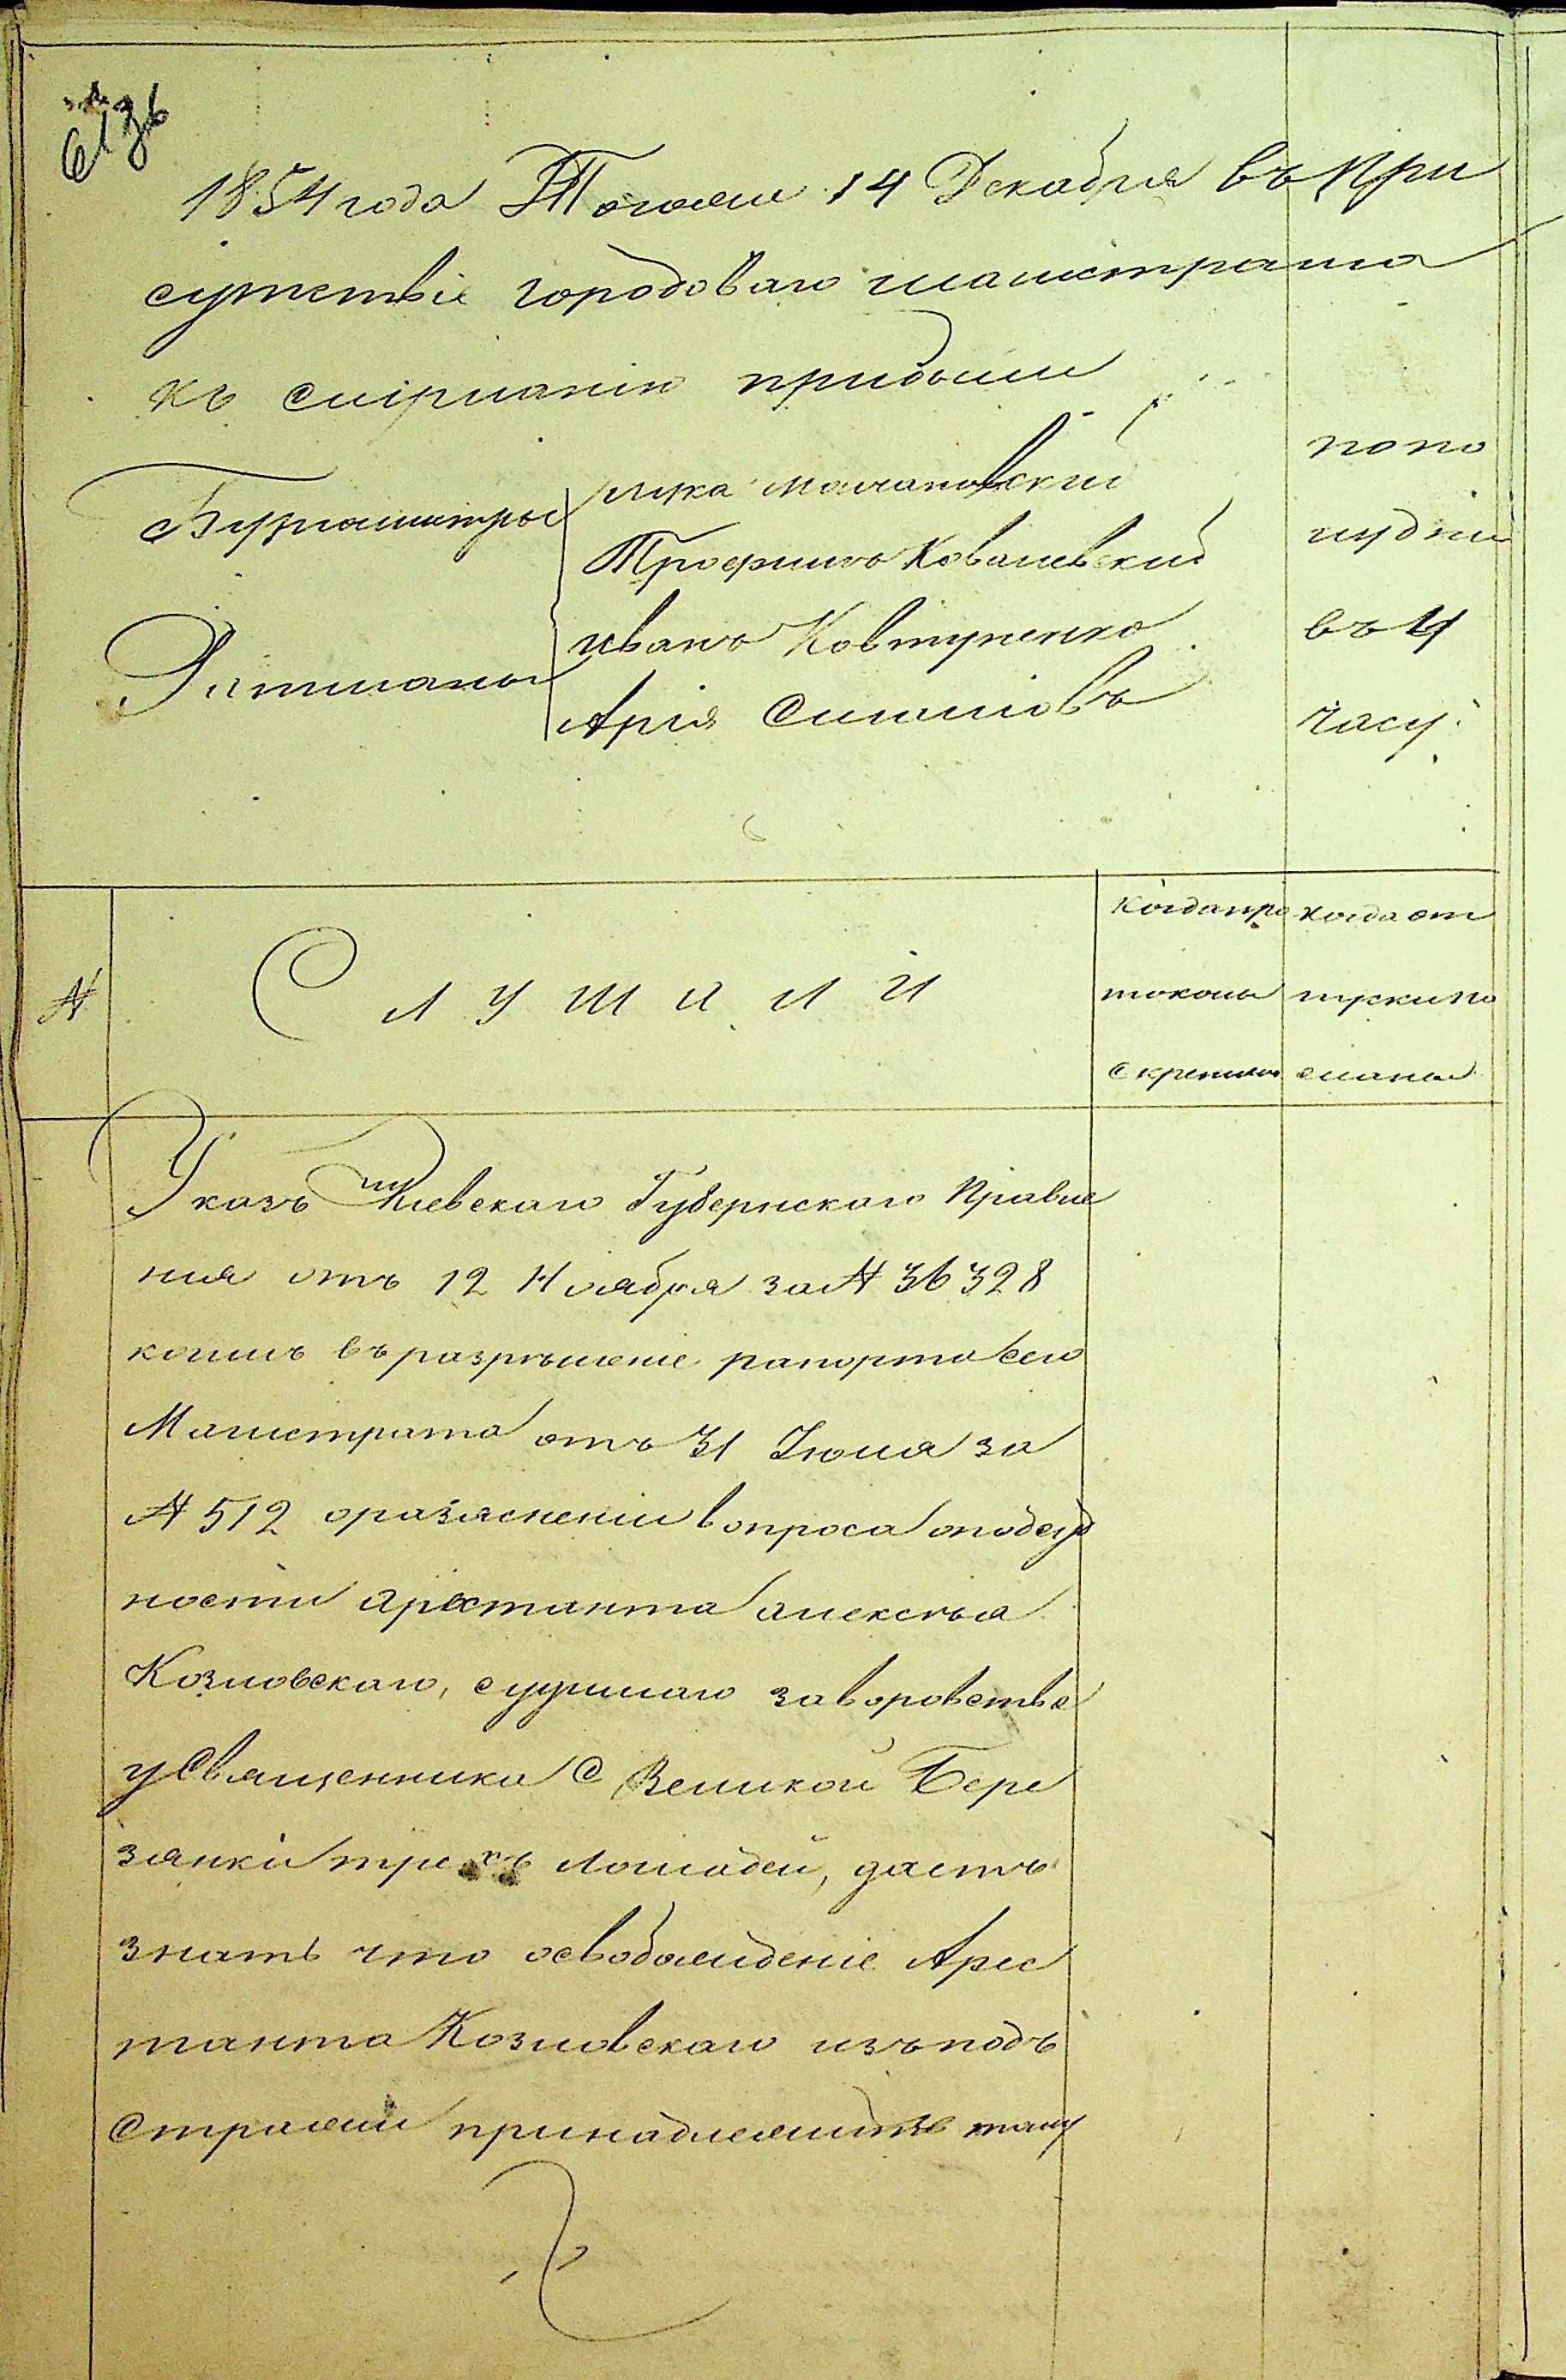 1854 года Тогоже 14 Декабря въ При
сутствіе городоваго магистрата
къ слѣдованію прибыли
Бургомистры
лука молчановскій
Трофимъ Ковалевский
Ратманы
иванъ Ковтуненко
Арія Симховъ
попо
лудни
въ 4
часу
№
Слушали
когда про
токолы
скрепили
когда от
пуски по
сланы
Указъ Кіевскаго Губернскаго Правле
ния отъ 12 Ноября за № 36328
коимъ въ разрѣшеніе рапорта сего
Магистрата отъ 31 Июля за
№ 512 о разяснении вопроса о подсуд
ности арестанта алексѣя
Козловскаго, судимаго за воровство
у Священника с Великой Бере
зянки трехъ лошадей, даетъ
знать что освобожденіе Арес
танта Козловскаго изъ подъ
Стражи принадлежитъ тому